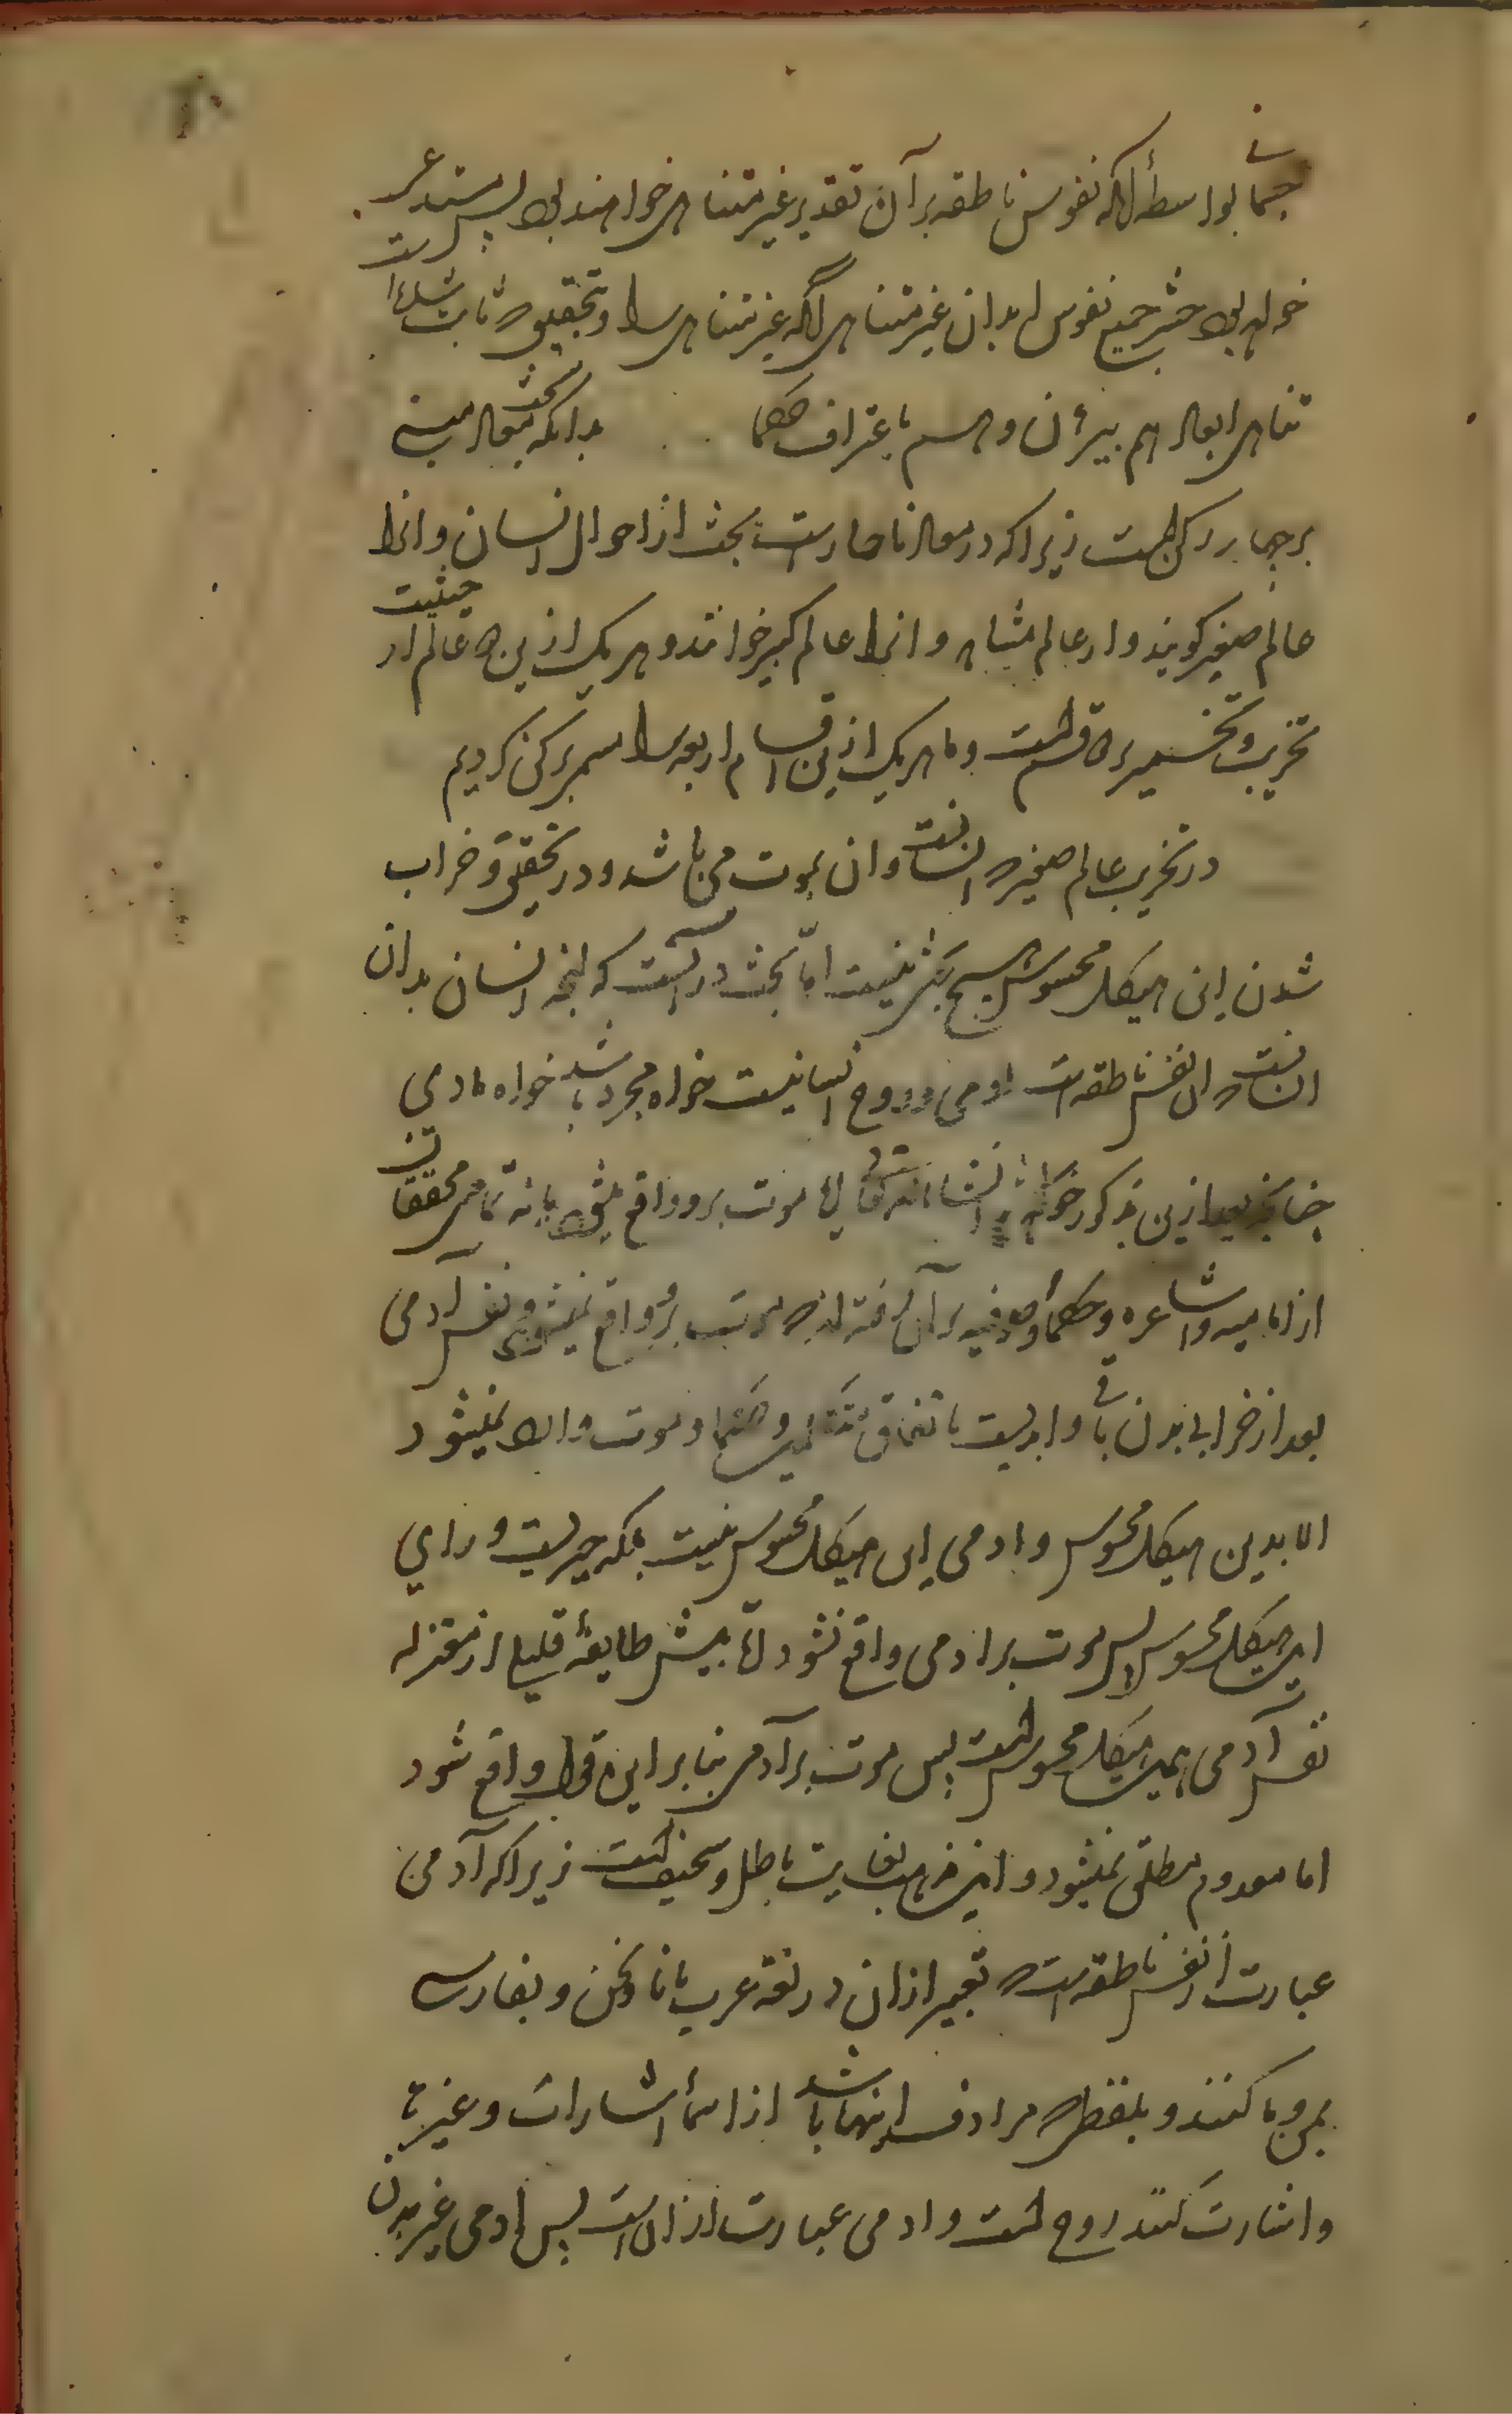 جسمانی بواسطهٔ آنکه نفوس ناطقه بر آن تقدیر غیر متناهی خواهند بود پس مستدعی
خواهد بود حشر جمیع نفوس ابدان غیر متناهی را که غیر متناهی و بتحقیق ثابت شده است
تناهی ابعاد هم ببرهان و هم باعتراف حکما بدانکه بحث معاد مبنی
بر چهار رکن است زیرا که در معاد ناچار است بحث از احوال انسان و انرا
عالم صغیر گویند و از عالم مشاهد و انرا عالم کبیر خوانند و هر یک ازین دو عالم از حیثیت
تخریب و تعمیر دو قسم است و ما هر یک ازین اقسام اربعه را مسمی برکن کردیم
در تخریب عالم صغیر که انسانست و ان بموت می باشد و در تحقیق خراب
شدن این هیکل محسوس هیچ شک نیست اما بحث در آنست که آنچه انسان بدان
انسانست که ان نفس ناطقه است ادمی و روح انسانیست خواه مجرد باشد خواه مادی
چنانچه بعد ازین مذکور خواهد شد انشاء الله تعالی موت برو واقع میشود یا نه تمامی محققان
از امامیه و اشاعره و حکما و صوفیه بر آن رفته اند که موت برو واقع نمیشود و نفس آدمی
بعد از خرابی بدن باقی و ابدیست باتفاق متکلمین و حکما و موت وارد نمیشود
الا بدین هیکل محسوس و ادمی این هیکل محسوس نیست بلکه چیزیست ورای
این هیکل محسوس پس موت بر ادمی واقع نشود اما پیش طایفهٔ قلیل از معتزله
نفس آدمی همین هیکل محسوس است پس موت بر آدمی بنا بر این قول واقع شود
اما معدوم مطلق نمیشود و این مذهب بغایت باطل و سخیف است زیرا که آدمی
عبارت از نفس ناطقه است که تعبیر از ان در لغة عرب بانا و نحن و بفارسی
بمن و ما کنند و بلفظی که مرادف اینها باشد از اسماء اشارات و غیرها
و اشارت کنند روح است و ادمی عبارت از ان است پس ادمی غیر بدن